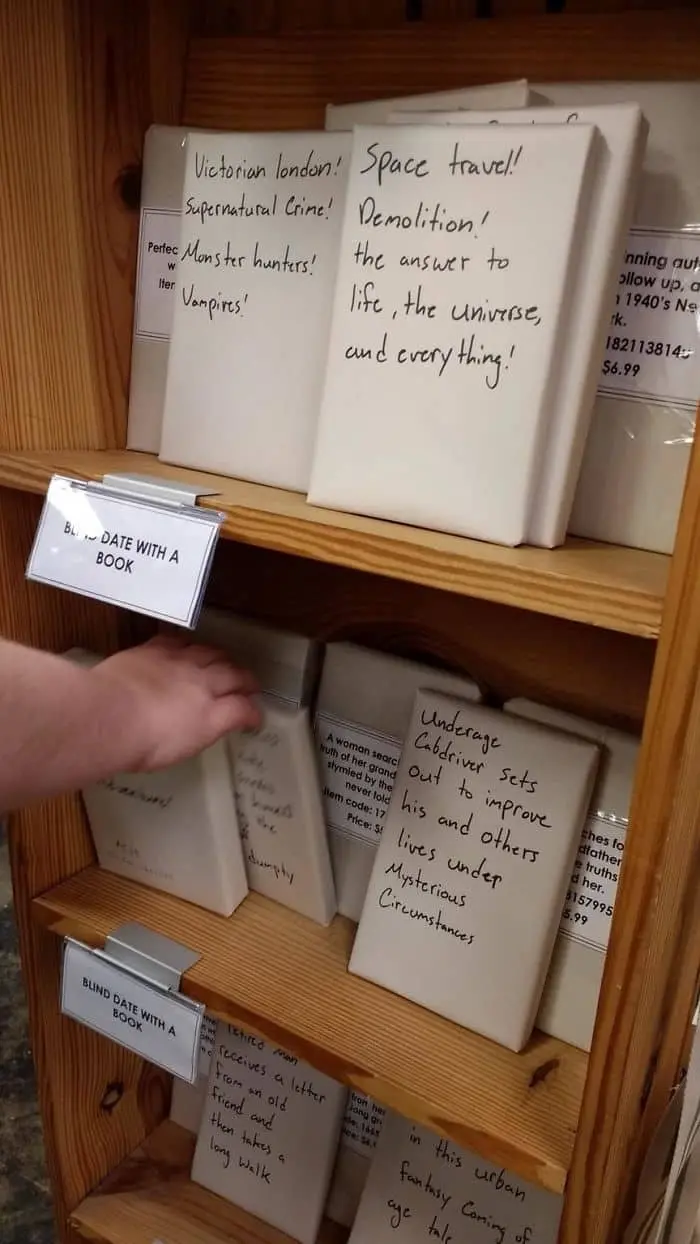 Victorian london!
Supernatural Crime!
Monster hunters!
Vampires!
Space travel!
Demolition!
the answer to
life, the universe,
and everything!
1940's
$6.99
BLIND DATE WITH A
BOOK
A woman
truth of her
stymied by the
never told
Item code: 17
Price:
dumpty
Underage
Cabdriver sets
out to improve
his and others
lives under
Mysterious
Circumstances
truths
her.
BLIND DATE WITH A
BOOK
retired man
receives a letter
from an old
friend and
then takes a
long walk
in this urban
fantasy Coming of
age tale